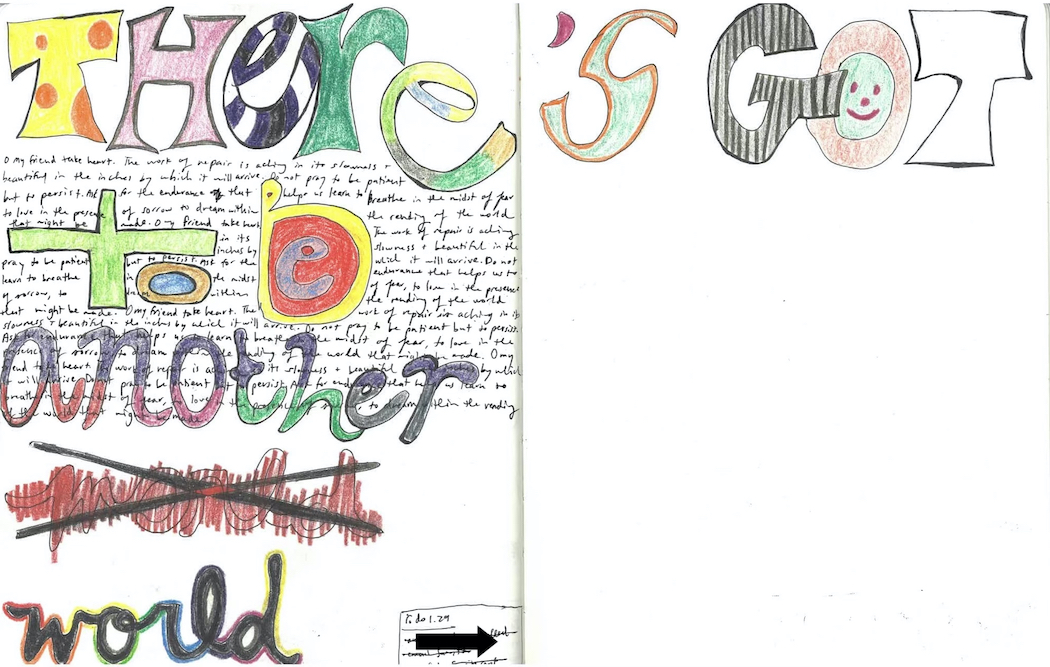 THere 's GOT
O my friend take heart. The work of repair is aching in its slowness +
beautiful in the inches by which it will arrive. Do not pray to be patient
but to persist. Ask for the endurance that helps us learn to breathe in the midst of fear
to love in the presence of sorrow to dream within the rending of the world
that might be made. O my friend take heart The work of repair is aching
to be
in its slowness + beautiful in the
inches by which it will arrive. Do not
pray to be patient but to persist. Ask for the endurance that helps us to
learn to breathe in the midst of fear, to love in the presence
of sorrow, to within the rending of the world
that might be made. O my friend take heart. The work of repair is aching in its
slowness + beautiful in the inches by which it will arrive. Do not pray to be patient but to persist.
another
Ask endurance that helps us learn breathe the midst of fear, to love in the
of sorrow to dream of the world that might be made. O my
take heart. work of repair is its slowness + beautiful by which
will arrive. Do pray to be patient persist. Ask for endurance that us learn to
in the midst of fear, love the presence to dream within the rending
of the world that might be made.
world
To do 1.29